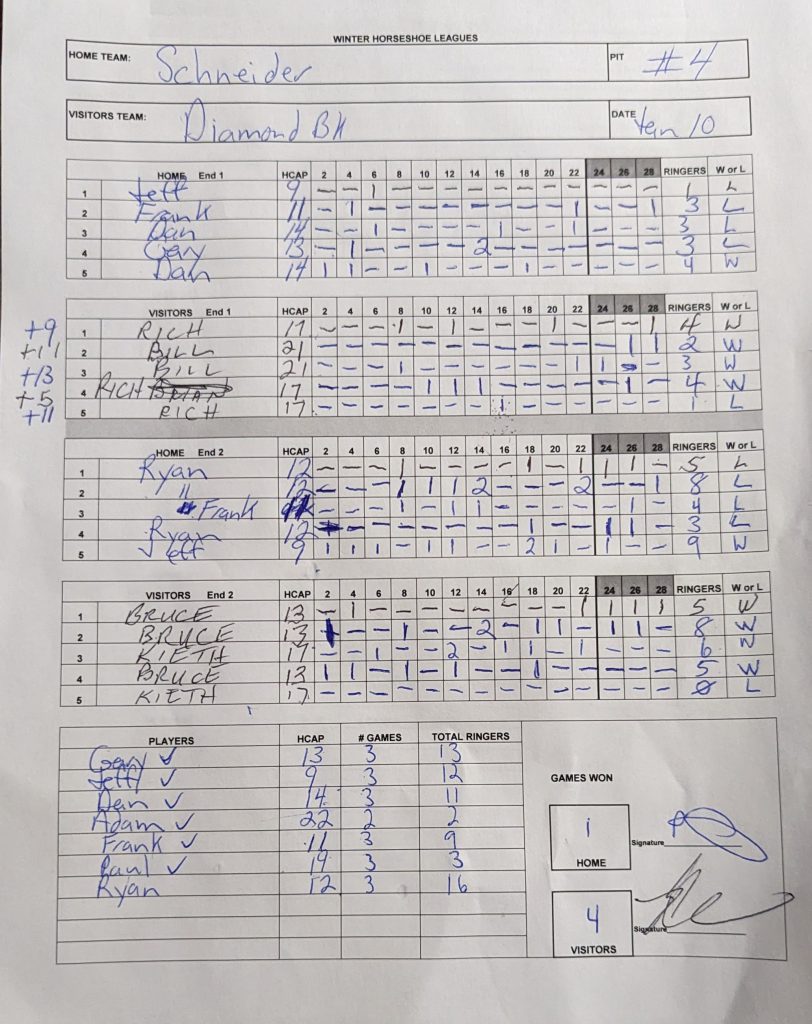 WINTER HORSESHOE LEAGUES
HOME TEAM: Schneider PIT #4
VISITORS TEAM: Diamond BK DATE Jan 10
HOME End 1 HCAP 2 4 6 8 10 12 14 16 18 20 22 24 26 28 RINGERS W or L
1 Jeff 9 – – 1 – – – – – – – – – – – 1 L
2 Frank 11 – 1 – – – – – – – – 1 – – 1 3 L
3 Dan 14 – – 1 – – – – 1 – – 1 – – – 3 L
4 Gary 13 – 1 – – – – 2 – – – – – – – 3 L
5 Dan 14 1 1 – – 1 – – – 1 – – – – – 4 W
VISITORS End 1 HCAP 2 4 6 8 10 12 14 16 18 20 22 24 26 28 RINGERS W or L
+9 1 RICH 17 – – – 1 – 1 – – – 1 – – – 1 4 W
+11 2 BILL 21 – – – – – – – – – – – – 1 1 2 W
+13 3 BILL 21 – – – 1 – – – – – – 1 1 – – 3 W
+5 4 RICH 17 – – – – 1 1 1 – – – – – 1 – 4 W
+11 5 RICH 17 – – – – – – – 1 – – – – – – 1 L
HOME End 2 HCAP 2 4 6 8 10 12 14 16 18 20 22 24 26 28 RINGERS W or L
1 Ryan 12 – – – 1 – – – – 1 – 1 1 1 – 5 L
2 " 12 – – – 1 1 1 2 – – – 2 – – 1 8 L
3 Frank – – – 1 – 1 1 – – – – – 1 – 4 L
4 Ryan 12 – – – – – – – – 1 – – 1 1 – 3 L
5 Jeff 9 1 1 1 – 1 1 – – 2 1 – 1 – – 9 W
VISITORS End 2 HCAP 2 4 6 8 10 12 14 16 18 20 22 24 26 28 RINGERS W or L
1 BRUCE 13 – 1 – – – – – – – – 1 1 1 1 5 W
2 BRUCE 13 – – 1 – – 2 – 1 1 – 1 1 – 8 W
3 KIETH 17 – – 1 – – 2 – 1 1 – 1 – – – 6 W
4 BRUCE 13 1 1 – 1 – 1 – – 1 – – – – – 5 W
5 KIETH 17 – – – – – – – – – – – – – – 0 L
PLAYERS HCAP # GAMES TOTAL RINGERS
Gary ✓ 13 3 13
Jeff ✓ 9 3 12
Dan ✓ 14 3 11
Adam ✓ 22 2 2
Frank ✓ 11 3 9
Paul ✓ 19 3 3
Ryan 12 3 16
GAMES WON
1
HOME
Signature
4
VISITORS
Signature